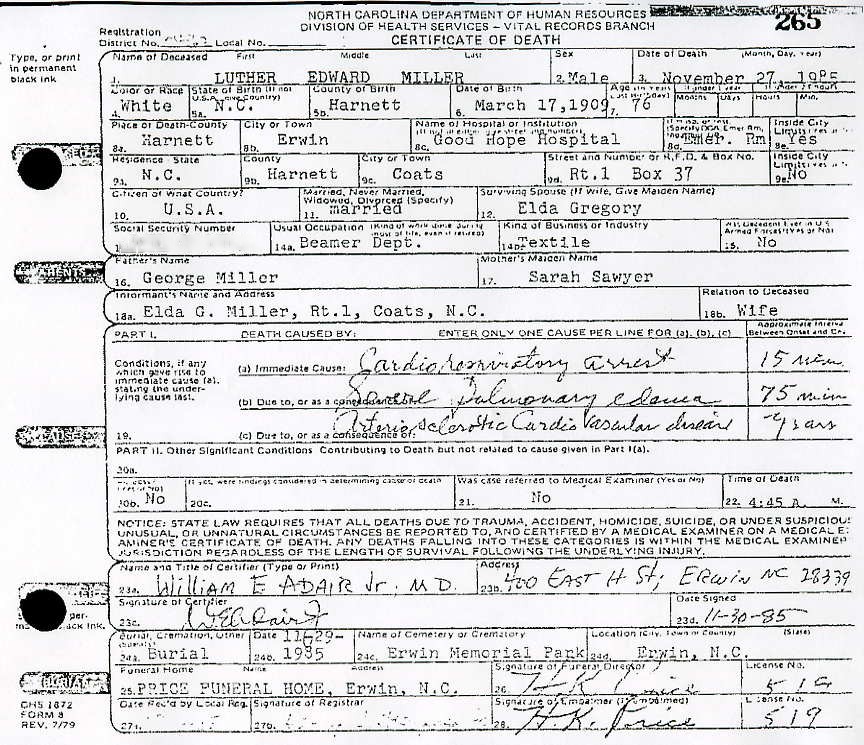 NORTH CAROLINA DEPARTMENT OF HUMAN RESOURCES
DIVISION OF HEALTH SERVICES - VITAL RECORDS BRANCH
265
Registration
District No. Local No.
CERTIFICATE OF DEATH
Type, or print
in permanent
black ink
Name of Deceased First Middle Last Sex Date of Death (Month, Day, Year)
1. LUTHER EDWARD MILLER 2. Male 3. November 27, 1985
Color or Race State of Birth (If not U.S. County of Birth Date of Birth Age
4. White 5a. N.C. 5b. Harnett 6. March 17, 1909 7. 76 Months Days Hours Min.
Place of Death-County City or Town Name of Hospital or Institution Inside City
8a. Harnett 8b. Erwin 8c. Good Hope Hospital 8d. Emer. Rm 8e. Yes
Residence - State County City or Town Street and Number or R.F.D. & Box No. Inside City
9a. N.C. 9b. Harnett 9c. Coats 9d. Rt.1 Box 37 9e. No
Citizen of What Country? Married, Never Married, Widowed, Divorced (Specify) Surviving Spouse (If Wife, Give Maiden Name)
10. U.S.A. 11. married 12. Elda Gregory
Social Security Number Usual Occupation (Kind of work done during most of life, even if retired) Kind of Business or Industry Was Decedent Ever in U.S. Armed Forces? (Yes or No)
14a. Beamer Dept. 14b. Textile 15. No
PARENTS
Father's Name Mother's Maiden Name
16. George Miller 17. Sarah Sawyer
Informant's Name and Address Relation to Deceased
18a. Elda G. Miller, Rt.1, Coats, N.C. 18b. Wife
PART I. DEATH CAUSED BY: ENTER ONLY ONE CAUSE PER LINE FOR (a), (b), (c) Approximate Interval Between Onset and
Conditions, if any
which gave rise to
immediate cause (a),
stating the under-
lying cause last.
(a) Immediate Cause: Cardiorespiratory arrest 15 min
(b) Due to, or as a consequence of: Pulmonary edema 75 min
19. (c) Due to, or as a consequence of: Arteriosclerotic Cardiovascular disease years
PART II. Other Significant Conditions Contributing to Death but not related to cause given in Part I(a).
20a.
If yes, were findings considered in determining cause of death Was case referred to Medical Examiner (Yes or No) Time of Death
20b. No 20c. 21. No 22. 4:45 A. M.
NOTICE: STATE LAW REQUIRES THAT ALL DEATHS DUE TO TRAUMA, ACCIDENT, HOMICIDE, SUICIDE, OR UNDER SUSPICIOU
UNUSUAL, OR UNNATURAL CIRCUMSTANCES BE REPORTED TO, AND CERTIFIED BY A MEDICAL EXAMINER ON A MEDICAL E
AMINER'S CERTIFICATE OF DEATH. ANY DEATHS FALLING INTO THESE CATEGORIES IS WITHIN THE MEDICAL EXAMINER
JURISDICTION REGARDLESS OF THE LENGTH OF SURVIVAL FOLLOWING THE UNDERLYING INJURY.
Name and Title of Certifier (Type or Print) Address
23a. William E Adair Jr, MD. 23b. 400 East H St; Erwin NC 28339
Signature of Certifier Date Signed
23c. WE Adair Jr 23d. 11-30-85
per-
ack ink.
Burial, Cremation, Other Date Name of Cemetery or Crematory Location (City, Town or County) (State)
24a. Burial 24b. 11-29-1985 24c. Erwin Memorial Park 24d. Erwin, N.C.
BURIAL
Funeral Home Name Address Signature of Funeral Director License No.
25. PRICE FUNERAL HOME, Erwin, N.C. 26. H.K. Price 519
DHS 1872
FORM 8
REV. 7/79
Date Rec'd by Local Reg. Signature of Registrar Signature of Embalmer (If embalmed) License No.
27a. 27b. 28. H.K. Price 519